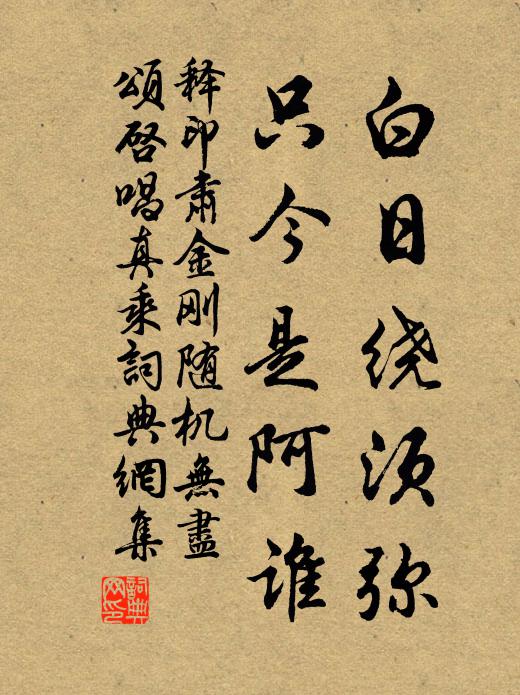 白日绕须弥
只今是阿谁
释印肃金刚随机無盡
頌啓唱真乘詞典網集
詞典網印